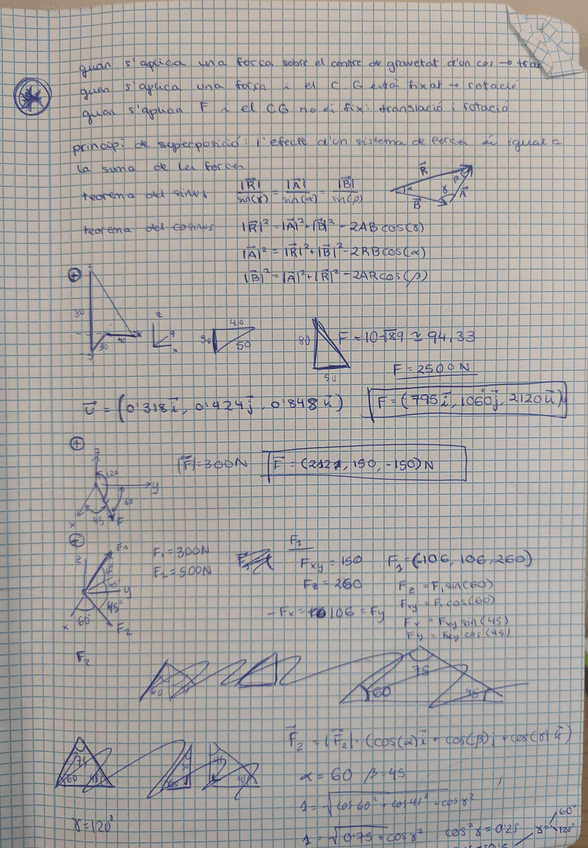 quan s'aplica una força sobre el centre de gravetat d'un cos → tras
quan s'aplica una força i el C.G està fixat → rotació
quan s'aplica F i el CG no és fix: translació i rotació
principi de superposició: l'efecte d'un sistema de forces és igual a
la suma de les forces
teorema del sinus |R|/sin(γ) = |A|/sin(α) = |B|/sin(β)
teorema del cosinus |R|² = |A|²+|B|²-2ABcos(γ)
|A|² = |R|²+|B|²-2RBcos(α)
|B|² = |A|²+|R|²-2ARcos(β)
F = 10√89 ≃ 94,33
F = 2500N
u = (0'318i, 0'424j, 0'848k) F = (795i, 1060j, 2120k)
|F| = 300N F = (212, 150, -150)N
F₁ = 300N
F₂ = 500N
F₁
Fxy = 150 F₁ = (-106, 106, 260)
Fz = 260 Fz = F₁sin(60)
Fxy = F₁cos(60)
-Fx = 106 = Fy Fx = Fxy sin(45)
Fy = Fxy cos(45)
F₂
75
60 45
F₂ = |F₂|·(cos(α)i + cos(β)j + cos(γ)k)
α = 60 β = 45
1 = √cos60² + cos45² + cosγ²
γ = 120°
1 = √0'75 + cosγ² cos²γ = 0'25 γ = 60° 120°